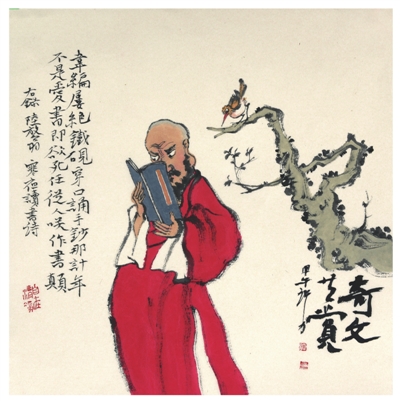 韋編屢絕鐵硯穿口誦手鈔那計年
不是愛書即欲死任從人笑作書顛
右錄陸放翁寒夜讀書詩
奇文
共賞
甲午